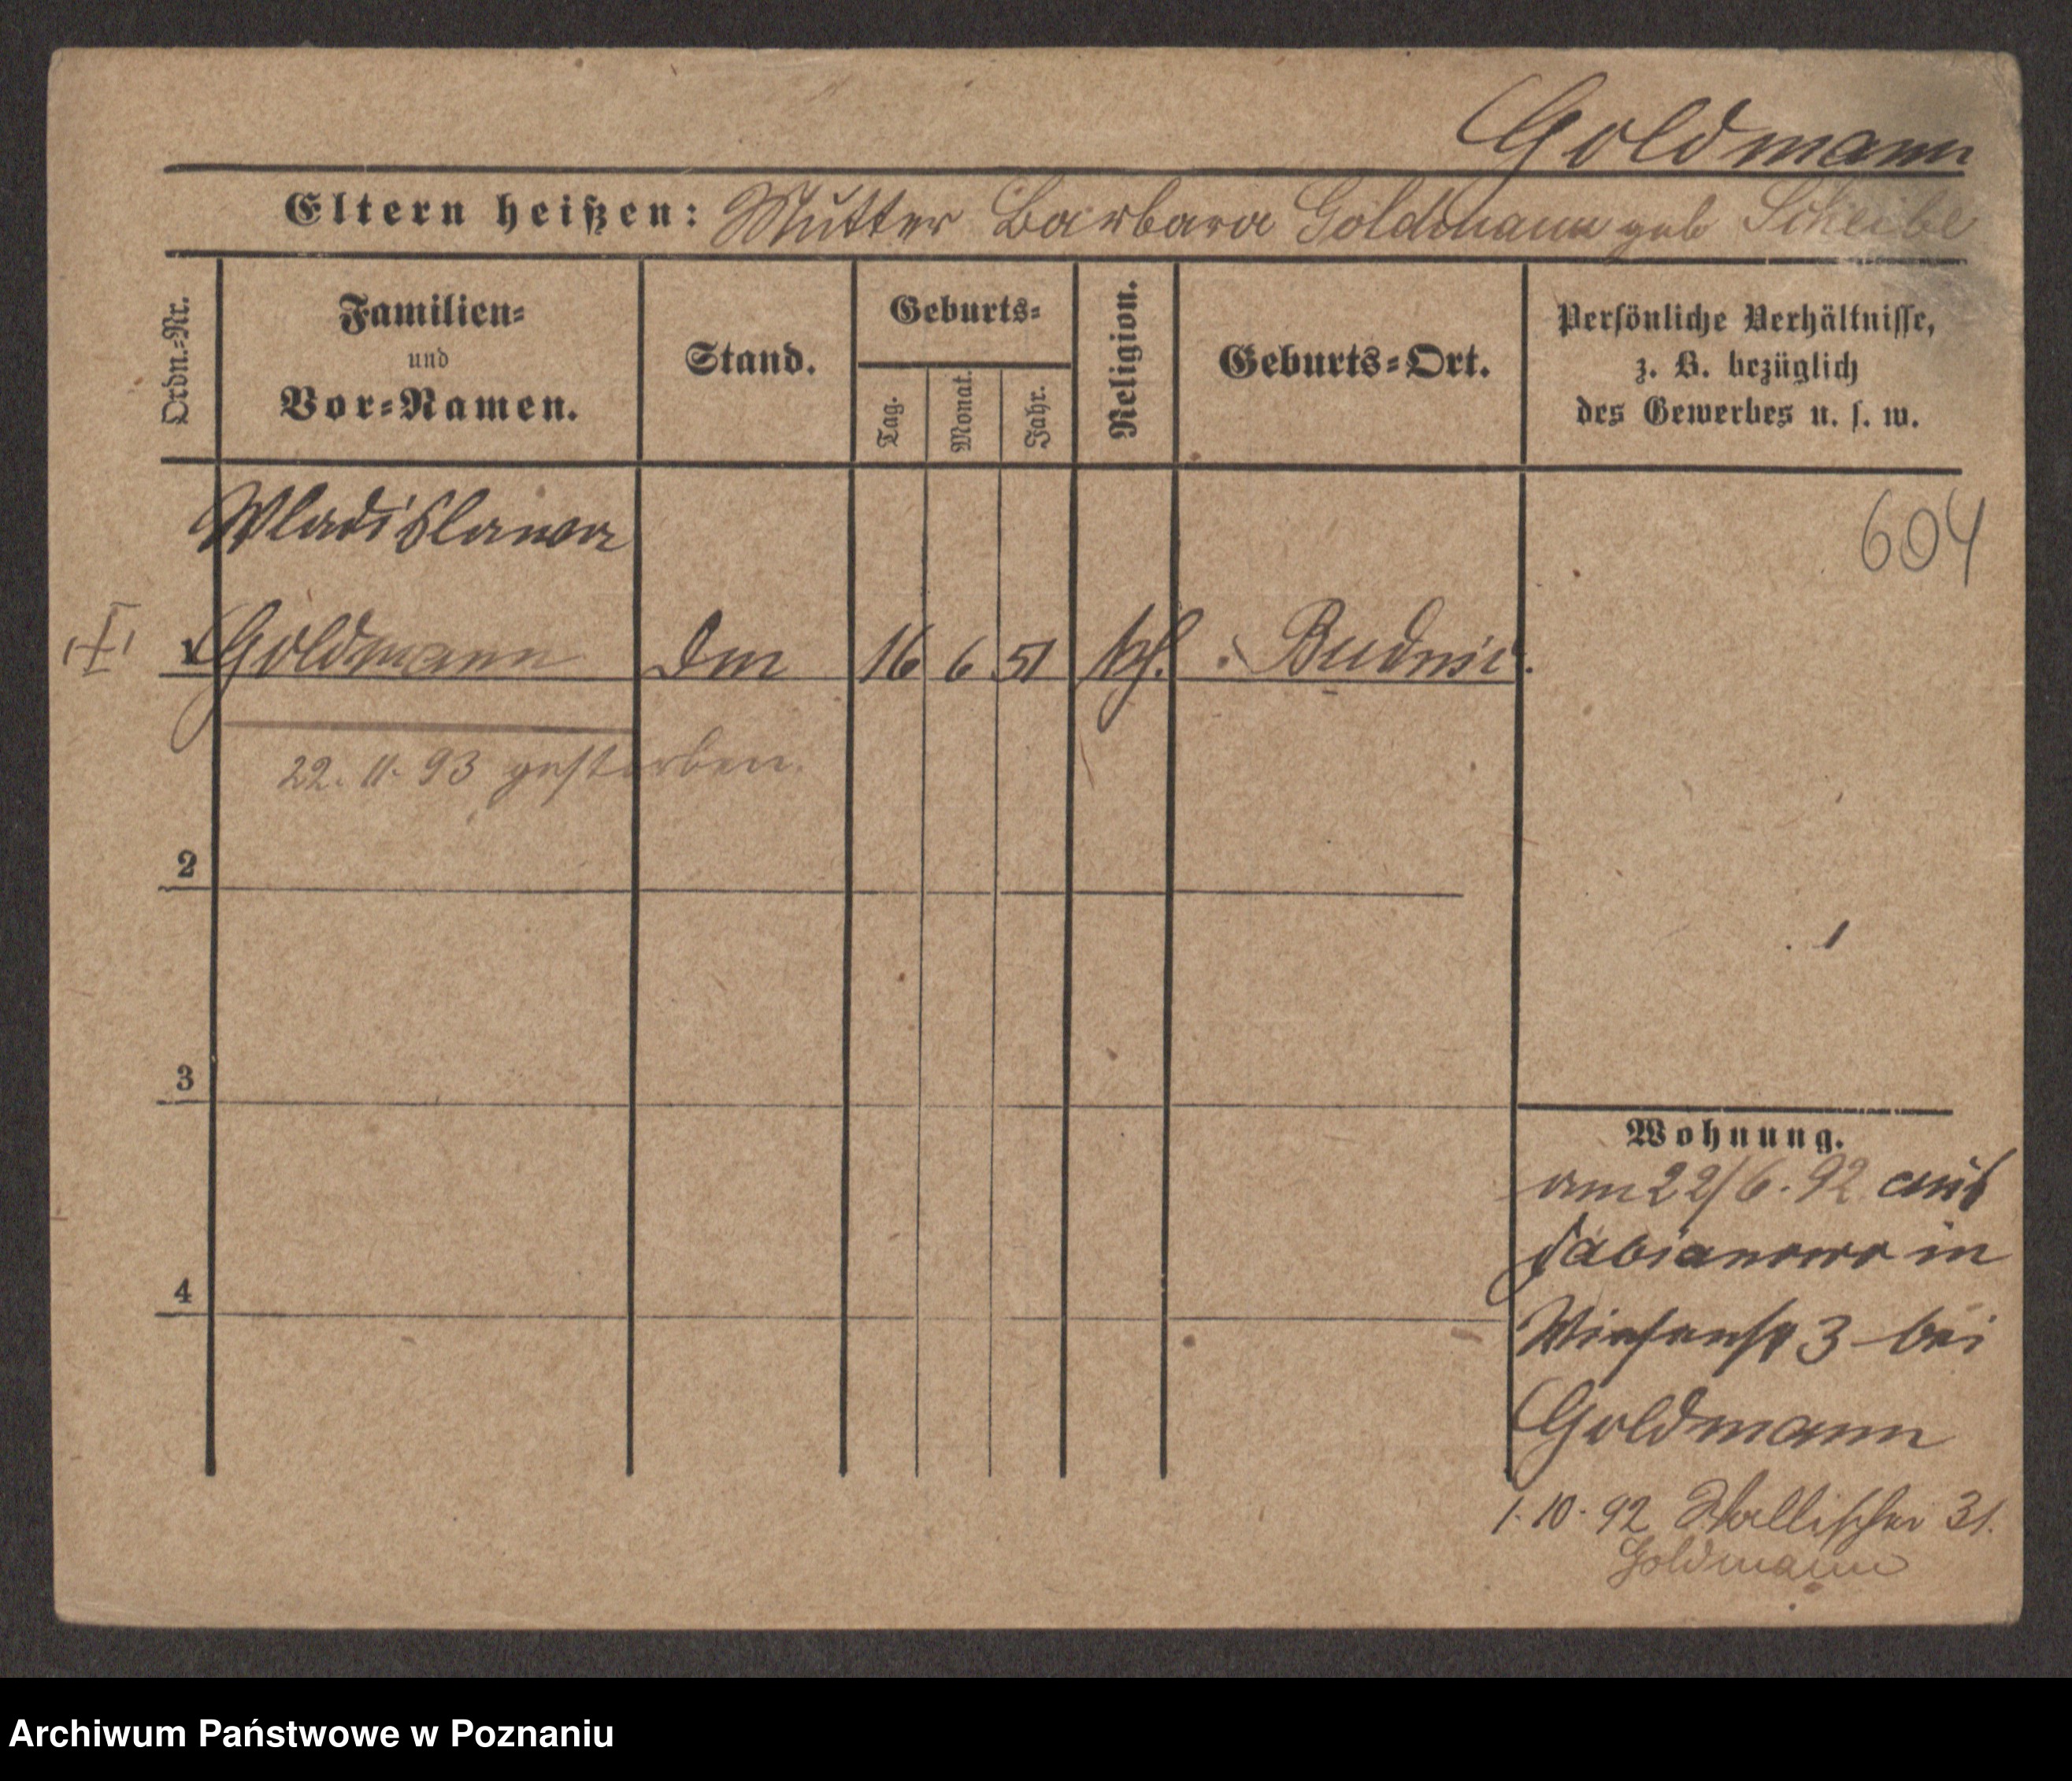 Goldmann
Eltern heißen: Mutter Barbara Goldmann geb Scheibe
Ordn.-Nr.
Familien-
und
Vor-Namen.
Stand.
Geburts-
Tag.
Monat.
Jahr.
Religion.
Geburts-Ort.
Persönliche Verhältnisse,
z. B. bezüglich
des Gewerbes u. s. w.
604
Wladislawa
1 Goldmann 16 6 51 kth.
22. 11. 93 gestorben.
2
3
4
Wohnung.
am 22/6. 92 aus
Fabianowo in
Wiesenstr 3 bei
Goldmann
1. 10. 92 Wallischei 31.
Goldmann
Archiwum Państwowe w Poznaniu